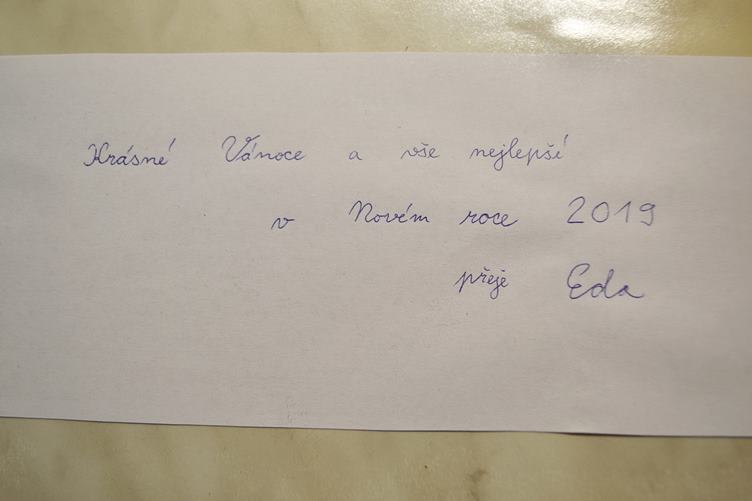 Krásné Vánoce a vše nejlepší
v Novém roce 2019
přeje Eda